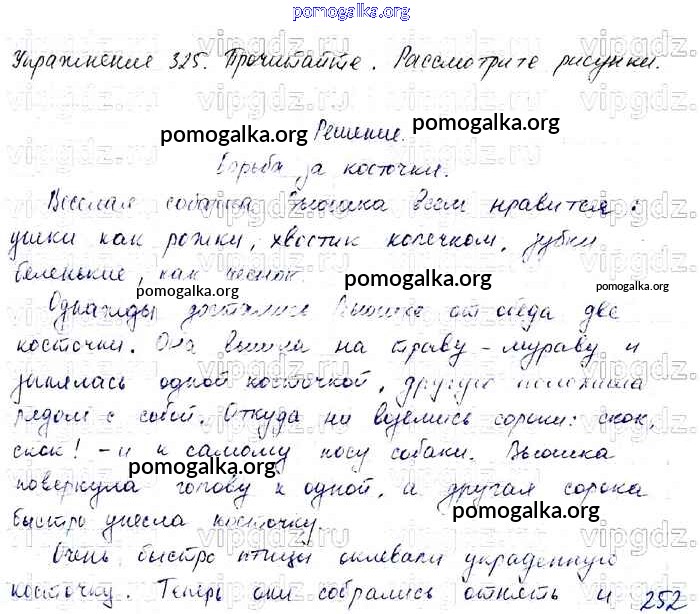 pomogalka.org
Упражнение 325. Прочитайте. Рассмотрите рисунки.
pomogalka.org
pomogalka.org Решение.
Борьба за косточки.
Веселая собачка Вьюшка всем нравится:
ушки как рожки, хвостик колечком, зубки
беленькие, как чеснок.
pomogalka.org
pomogalka.org
pomogalka.org
Однажды достались Вьюшке от обеда две
косточки. Она вышла на траву-мураву и
занялась одной косточкой, другую положила
pomogalka.org
рядом с собой. Откуда ни взялись сороки: скок,
скок! - и к самому носу собаки. Вьюшка
pomogalka.org
повернула голову к одной, а другая сорока
pomogalka.org
быстро унесла косточку.
Очень быстро птицы оклевали украденную
косточку. Теперь они собрались отнять и 252